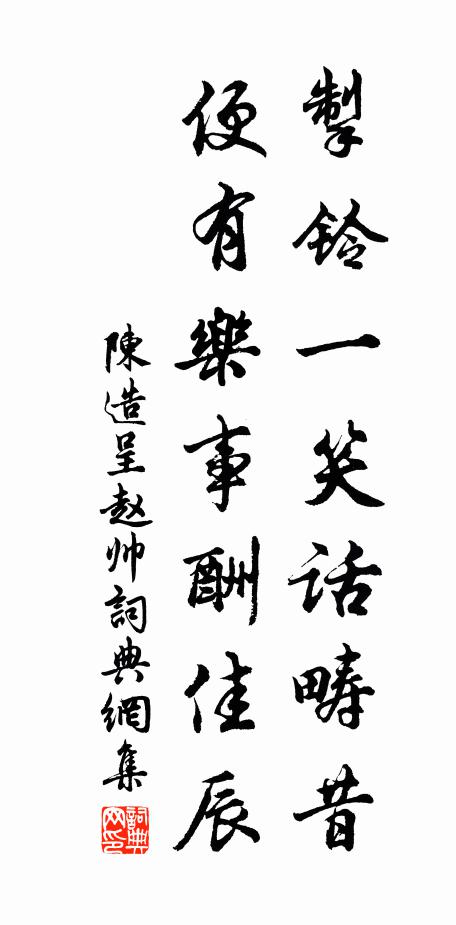 掣鈴一笑話疇昔
便有樂事酬佳辰
陳造呈赵帅詞典網集
詞典网印